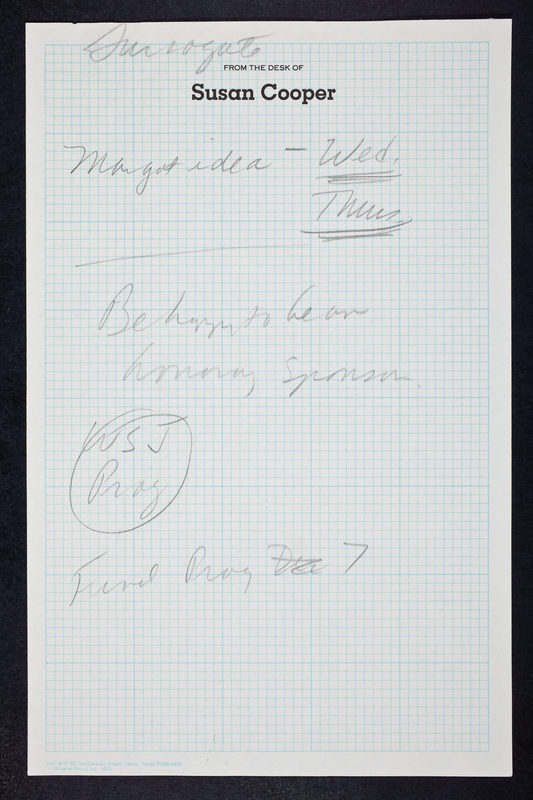 Surrogate
FROM THE DESK OF
Susan Cooper
Margot idea - Wed.
Thurs.
Be happy to be an
honorary sponsor.
WSJ
Prog
Fund Prog Dec 7